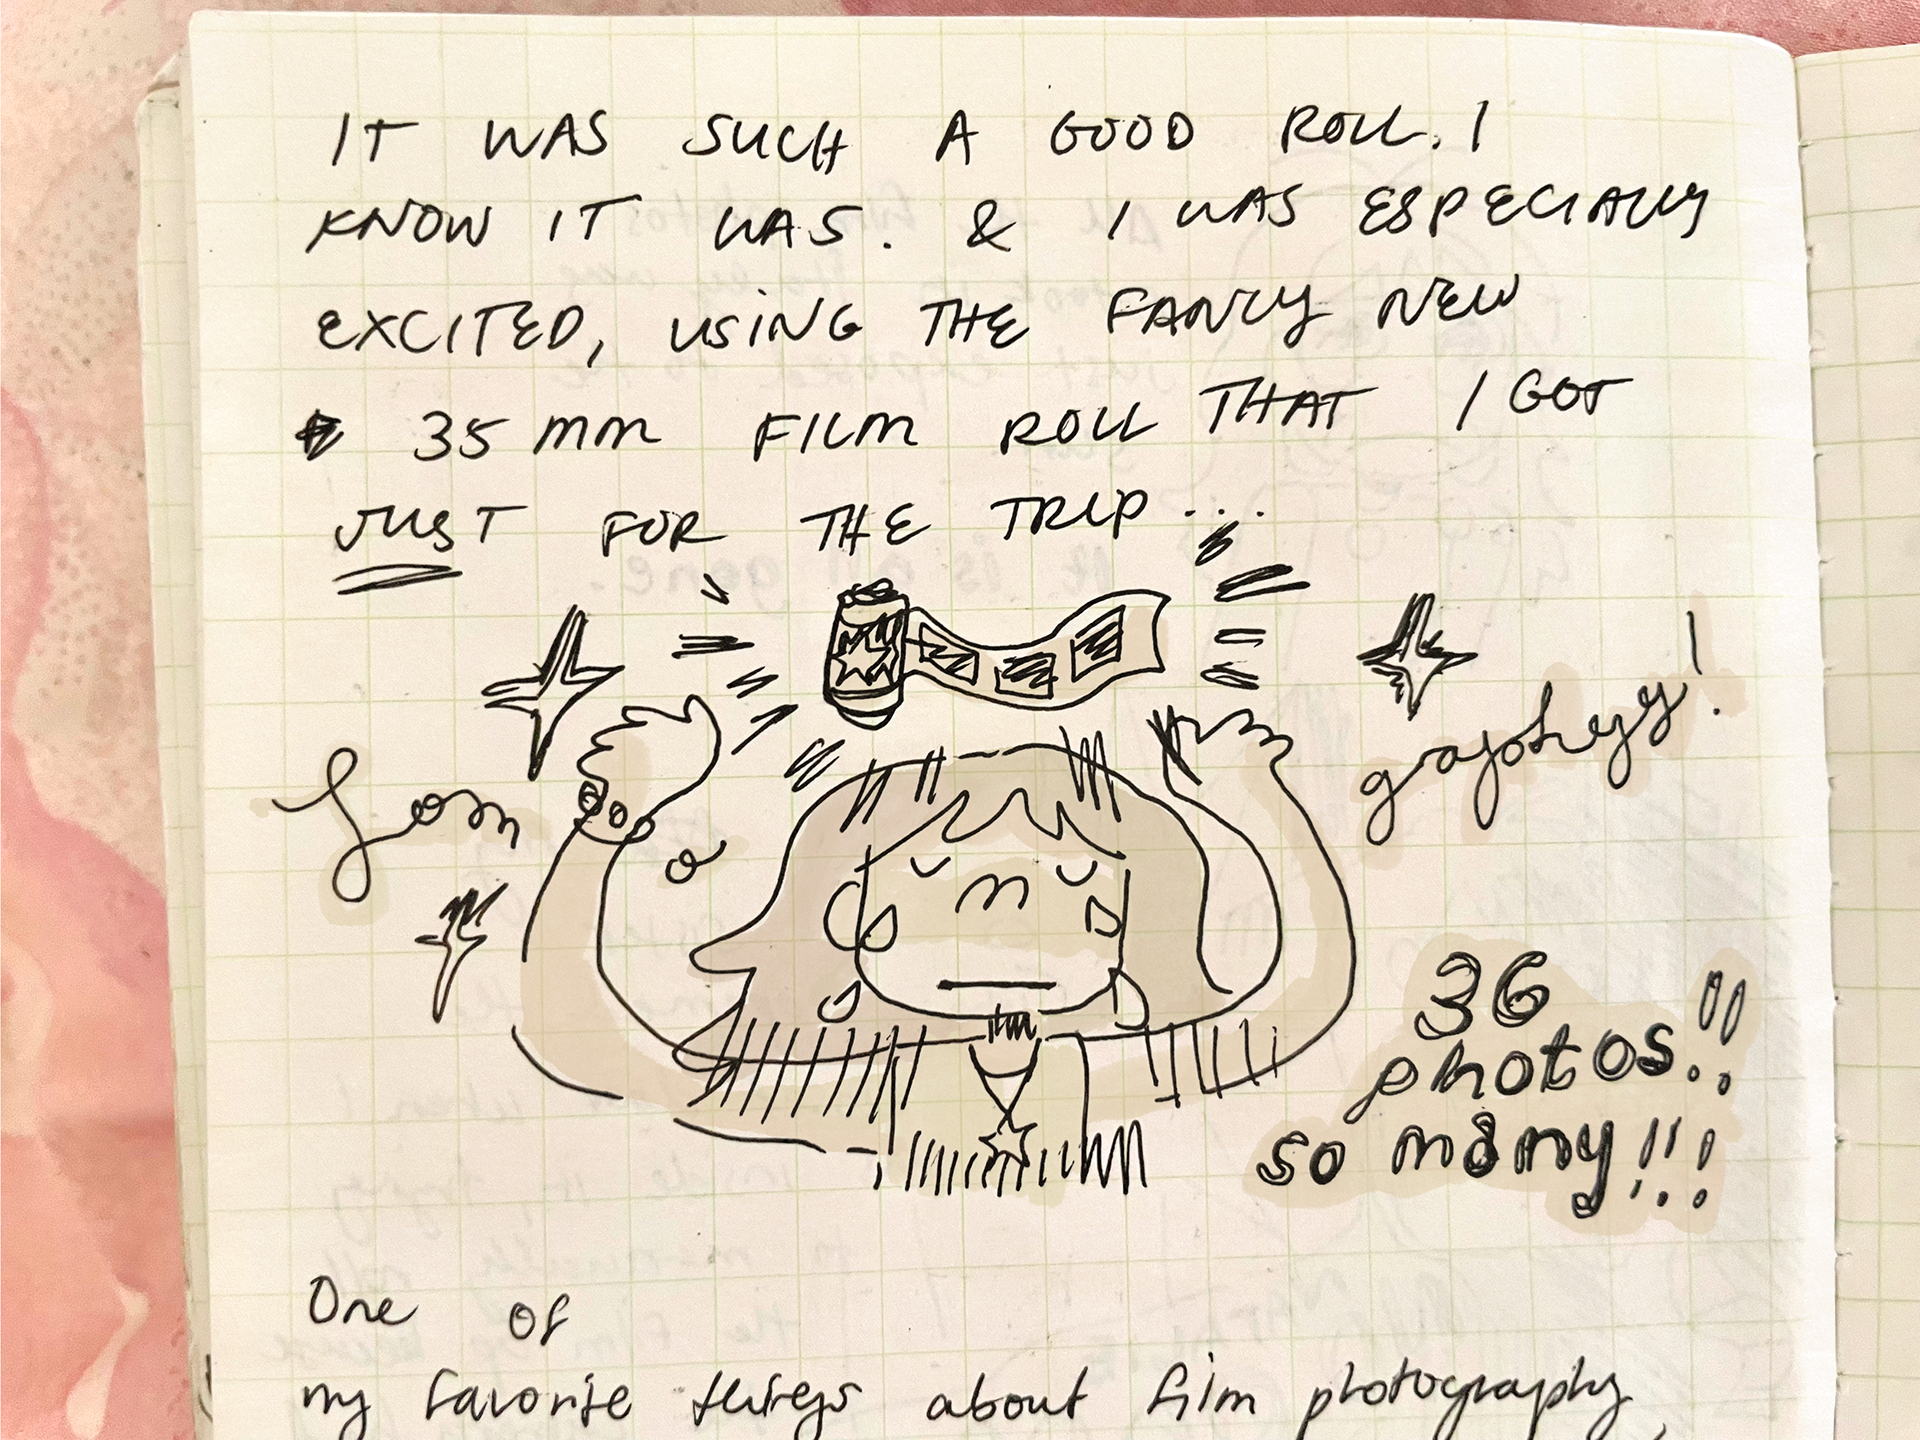 IT WAS SUCH A GOOD ROLL. I
KNOW IT WAS. & I WAS ESPECIALLY
EXCITED, USING THE FANCY NEW
35mm FILM ROLL THAT I GOT
JUST FOR THE TRIP...
Lomo
graphyy!
36
photos!!
so many!!!
One of
my favorite things about film photography,